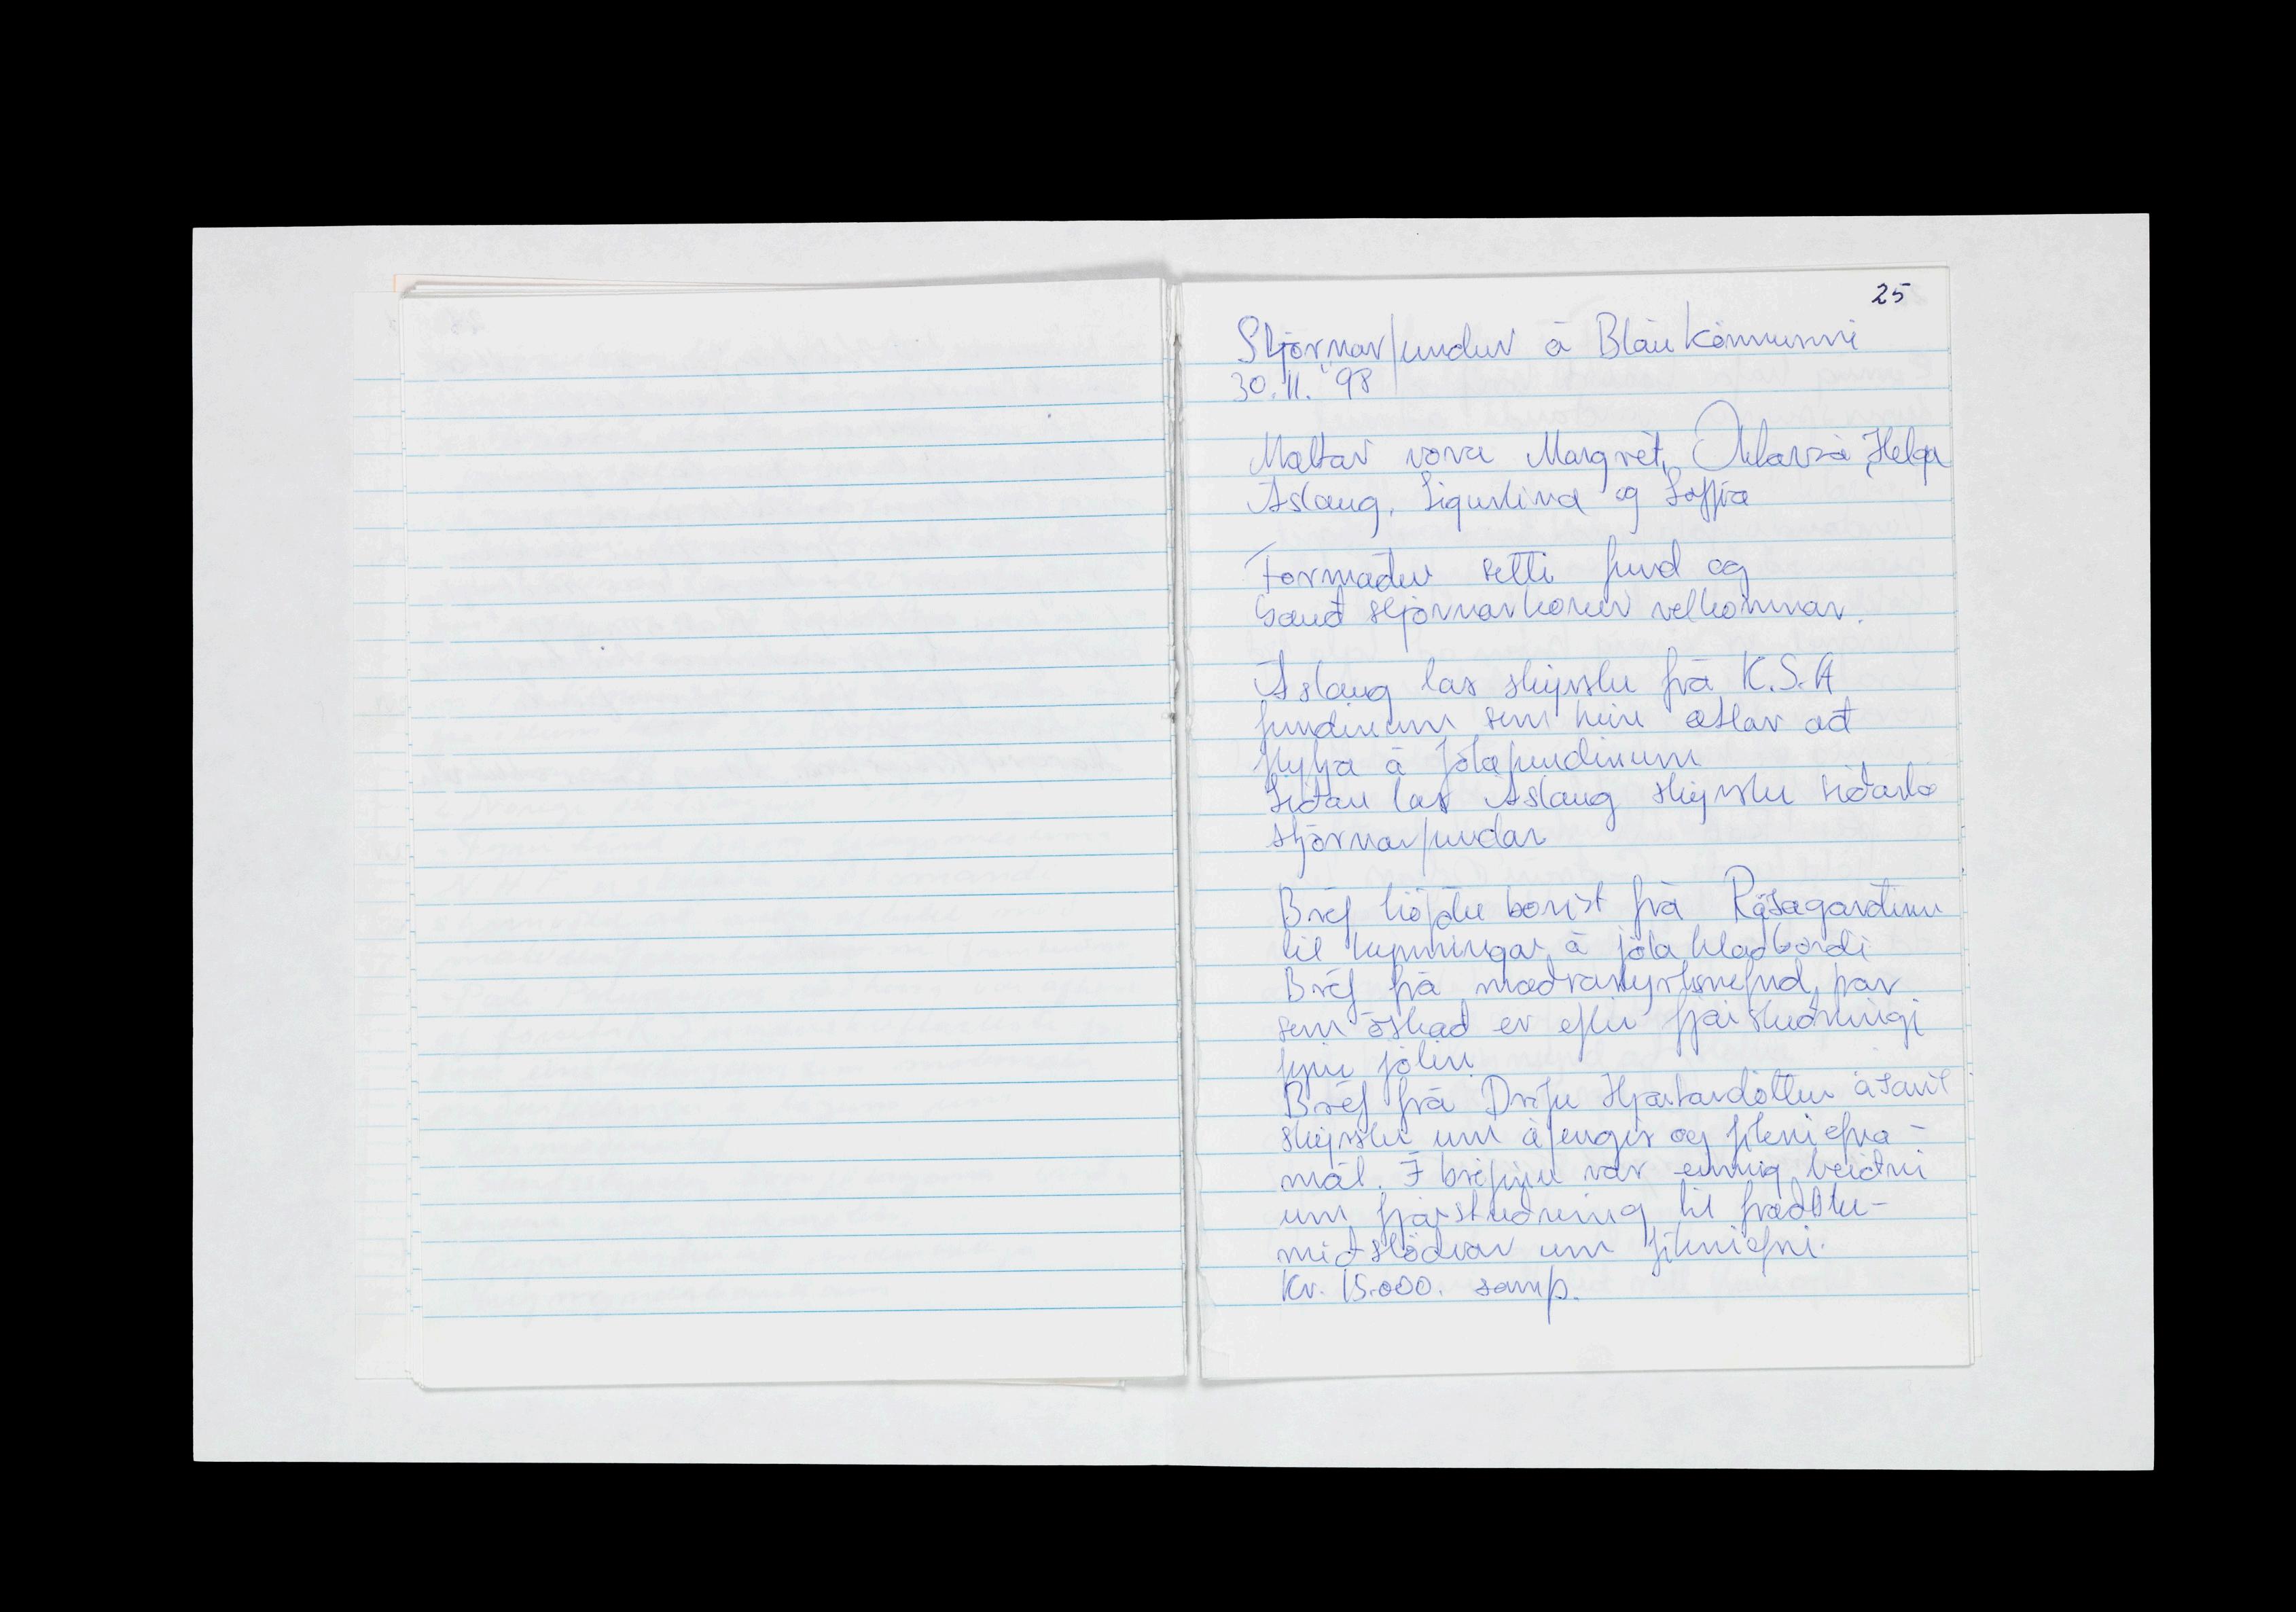 25
Stjórnarfundur á Bláu könnunni
30.11. '98
Mættar voru Margrét, Oktavía, Helga
Áslaug, Sigurlína og Soffía
Formaður setti fund og
bauð stjórnarkonur velkomnar.
Áslaug las skýrslu frá K.S.A
fundinum sem hún ætlar að
flytja á Jólafundinum
Síðan las Áslaug skýrslu síðasta
stjórnarfundar
Bréf höfðu borist frá
til kynningar á jóla hlaðborði
Bréf frá mæðrastyrksnefnd, þar
sem óskað er eftir fjárstuðningi
fyrir jólin
Bréf frá Drífu Hjartardóttur ásamt
skýrslu um áfengis og fíkniefna-
mál. Í bréfinu var einnig beiðni
um fjárstuðning til fræðslu-
miðstöðvar um fíkniefni.
Kr. 15.000. samþ.